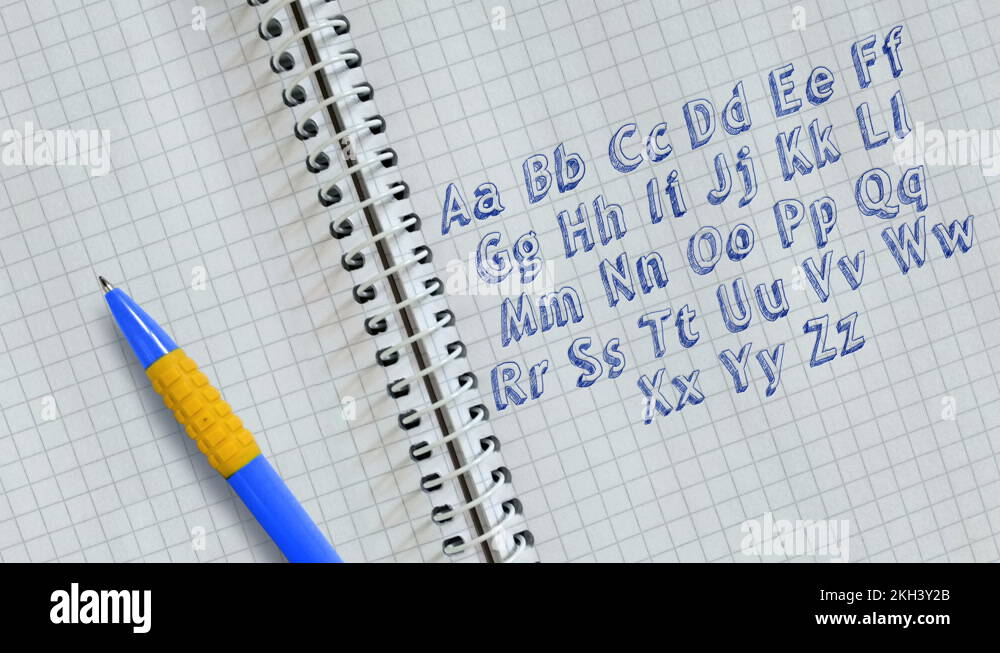 Aa Bb Cc Dd Ee Ff
Gg Hh Ii Jj Kk Ll
Mm Nn Oo Pp Qq
Rr Ss Tt Uu Vv Ww
Xx Yy Zz
alamy
alamy
alamy
alamy
Image ID: 2KH3Y2B
www.alamy.com